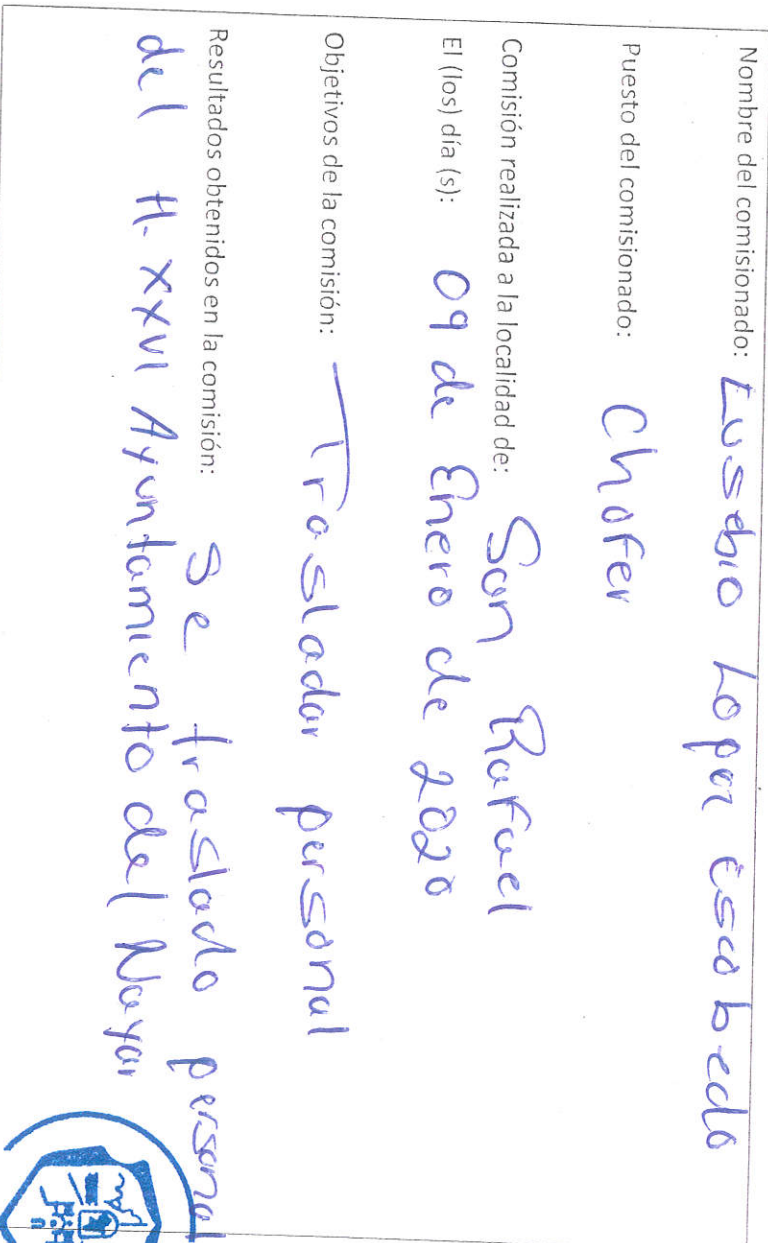 Nombre del comisionado: Eusebio Lopez Escobedo
Puesto del comisionado: Chofer
Comisión realizada a la localidad de: San Rafael
El (los) día (s): 09 de Enero de 2020
Objetivos de la comisión: Trasladar personal
Resultados obtenidos en la comisión: Se traslado personal
del H. XXVI Ayuntamiento del Nayar